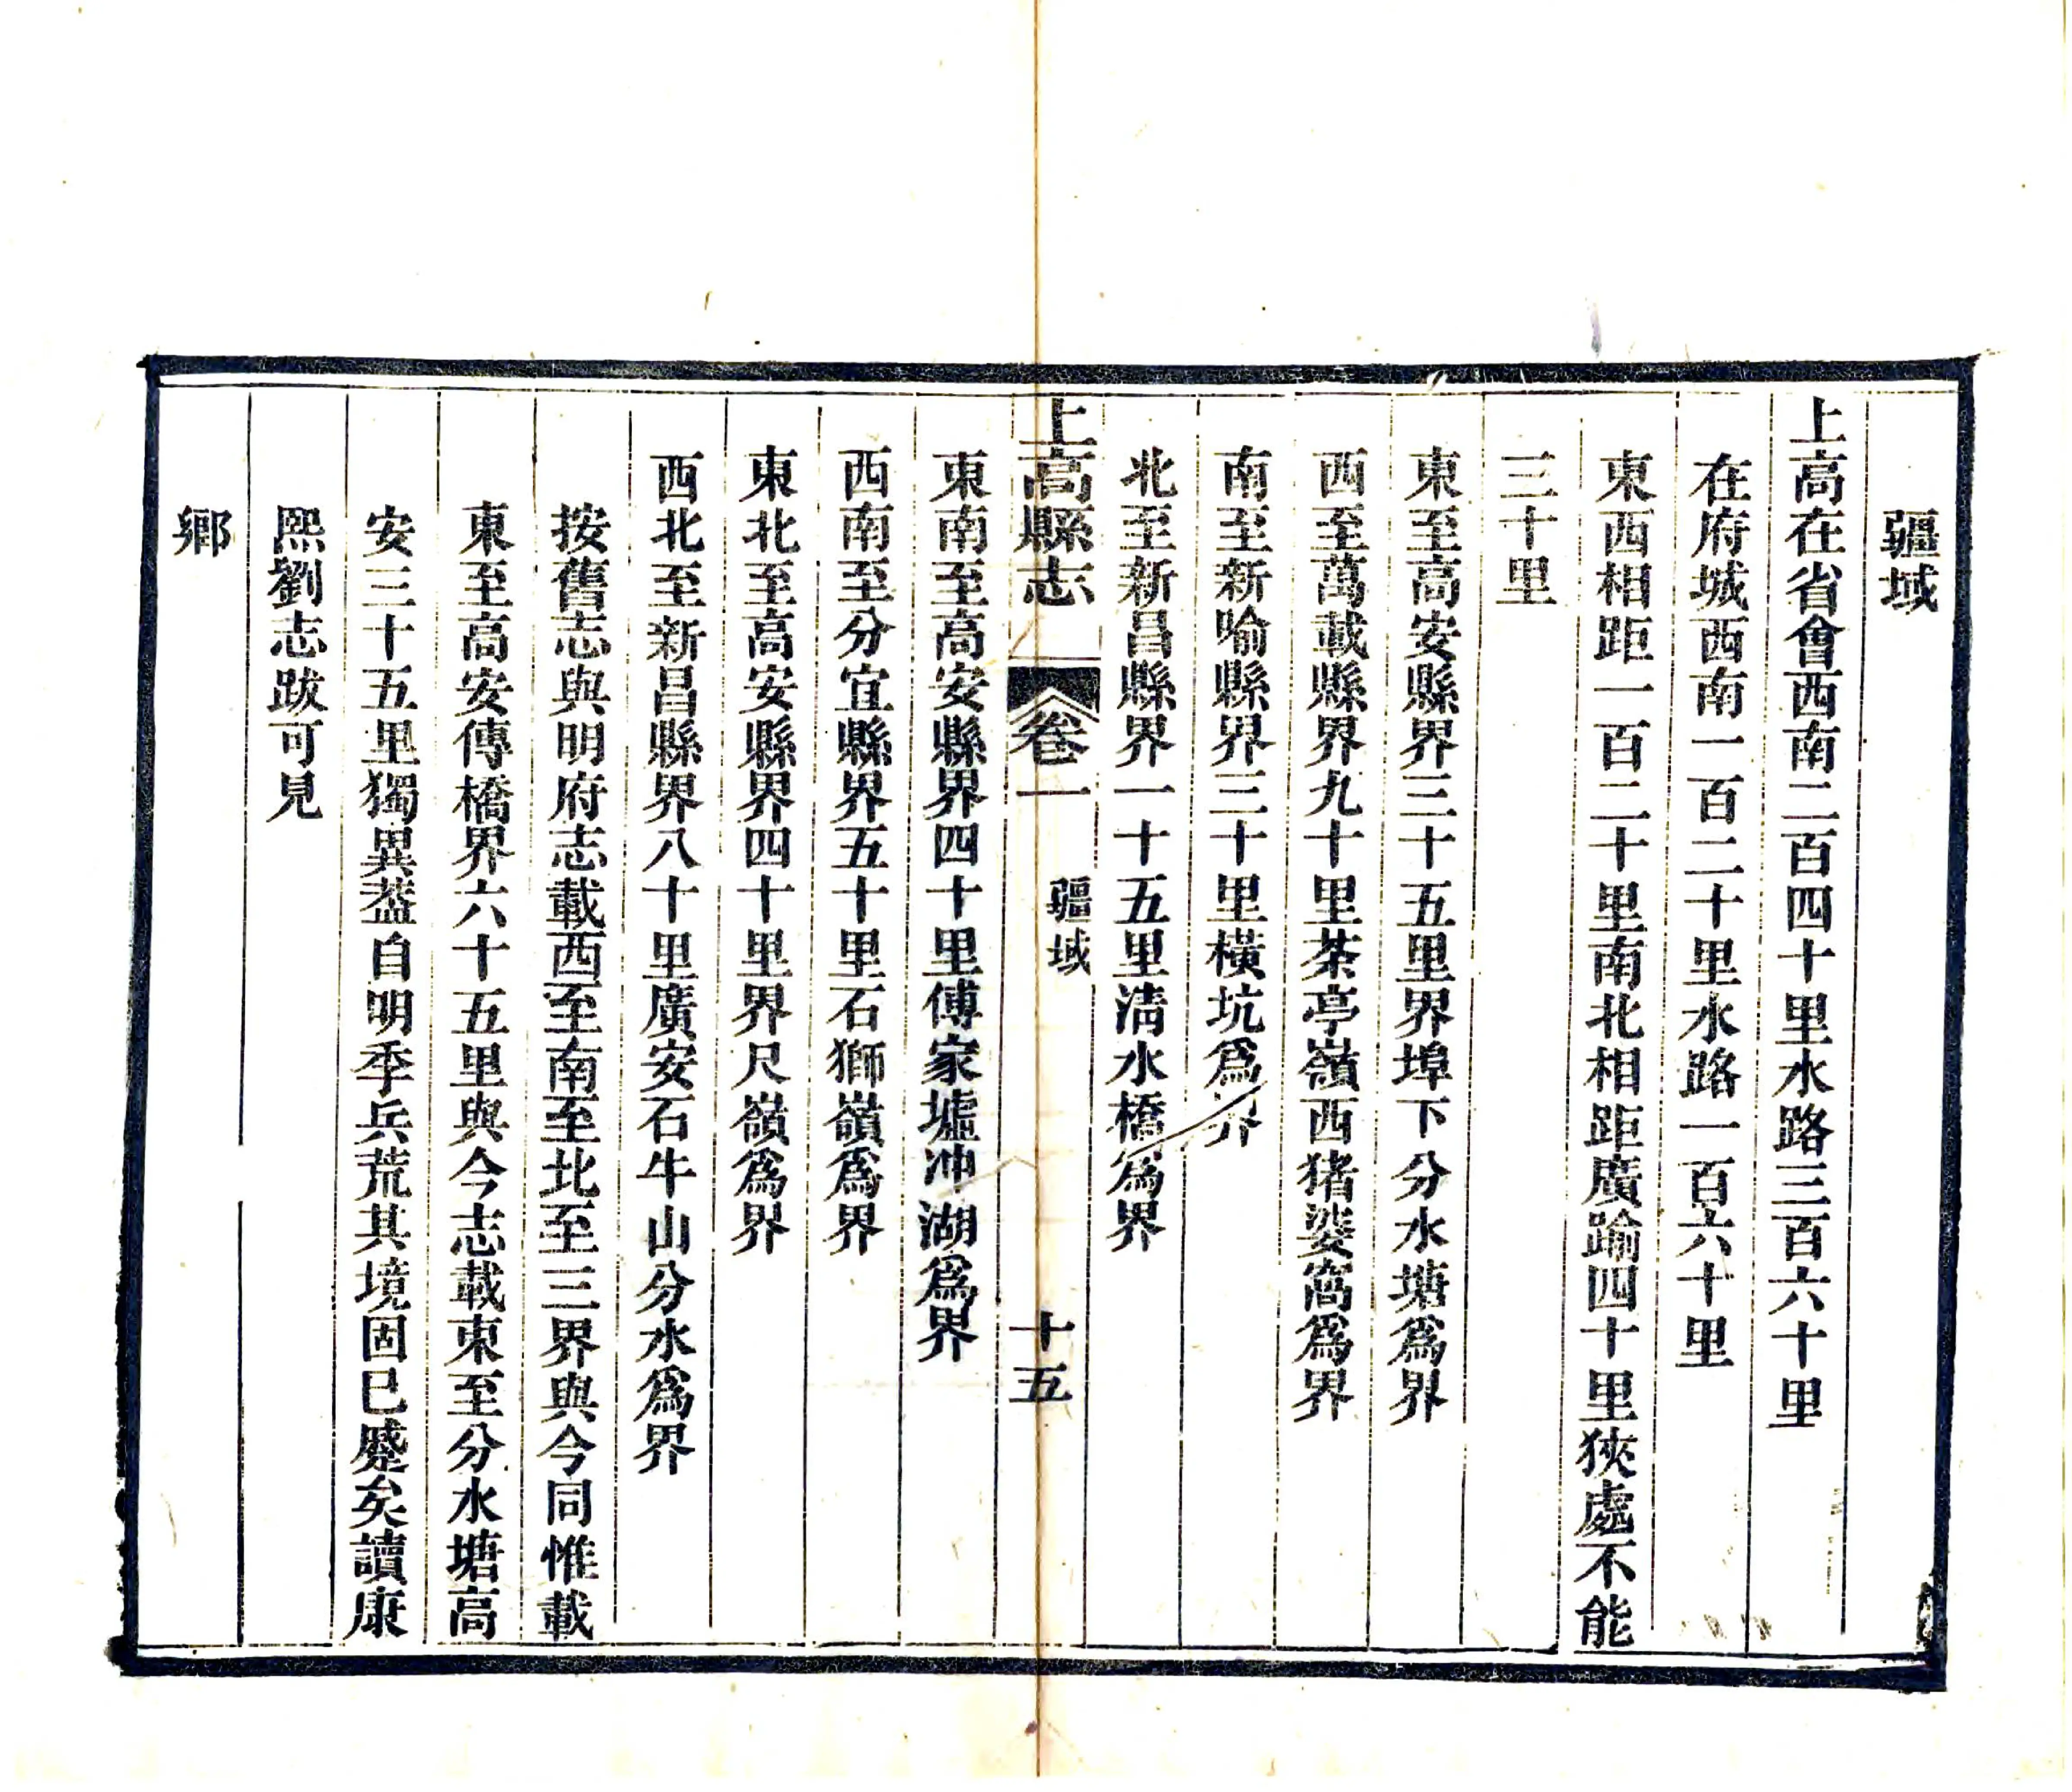 疆域
上高在省會西南二百四十里水路三百六十里
在府城西南一百二十里水路一百六十里
東西相距一百二十里南北相距廣踰四十里狹處不能
三十里
東至高安縣界三十五里界埠下分水塘爲界
西至萬載縣界九十里茶亭嶺西猪婆窩爲界
南至新喻縣界三十里橫坑爲界
北至新昌縣界一十五里淸水橋爲界
上高縣志 卷一 疆域 十五
東南至高安縣界四十里傅家墟冲湖爲界
西南至分宜縣界五十里石獅嶺爲界
東北至高安縣界四十里界尺嶺爲界
西北至新昌縣界八十里廣安石牛山分水爲界
按舊志與明府志載西至南至北至三界與今同惟載
東至高安傅橋界六十五里與今志載東至分水塘高
安三十五里獨異葢自明季兵荒其境固已蹙矣讀康
熙劉志跋可見
鄉